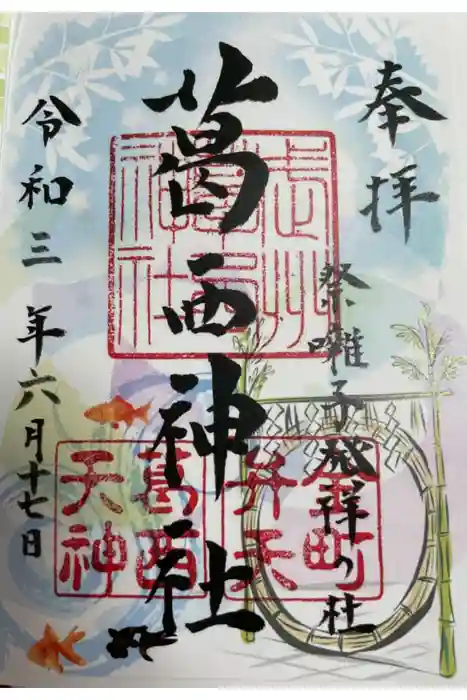 奉拝
祭囃子発祥の社
葛西神社
令和三年六月十七日
武州葛西神社
金町弁天
葛西天神